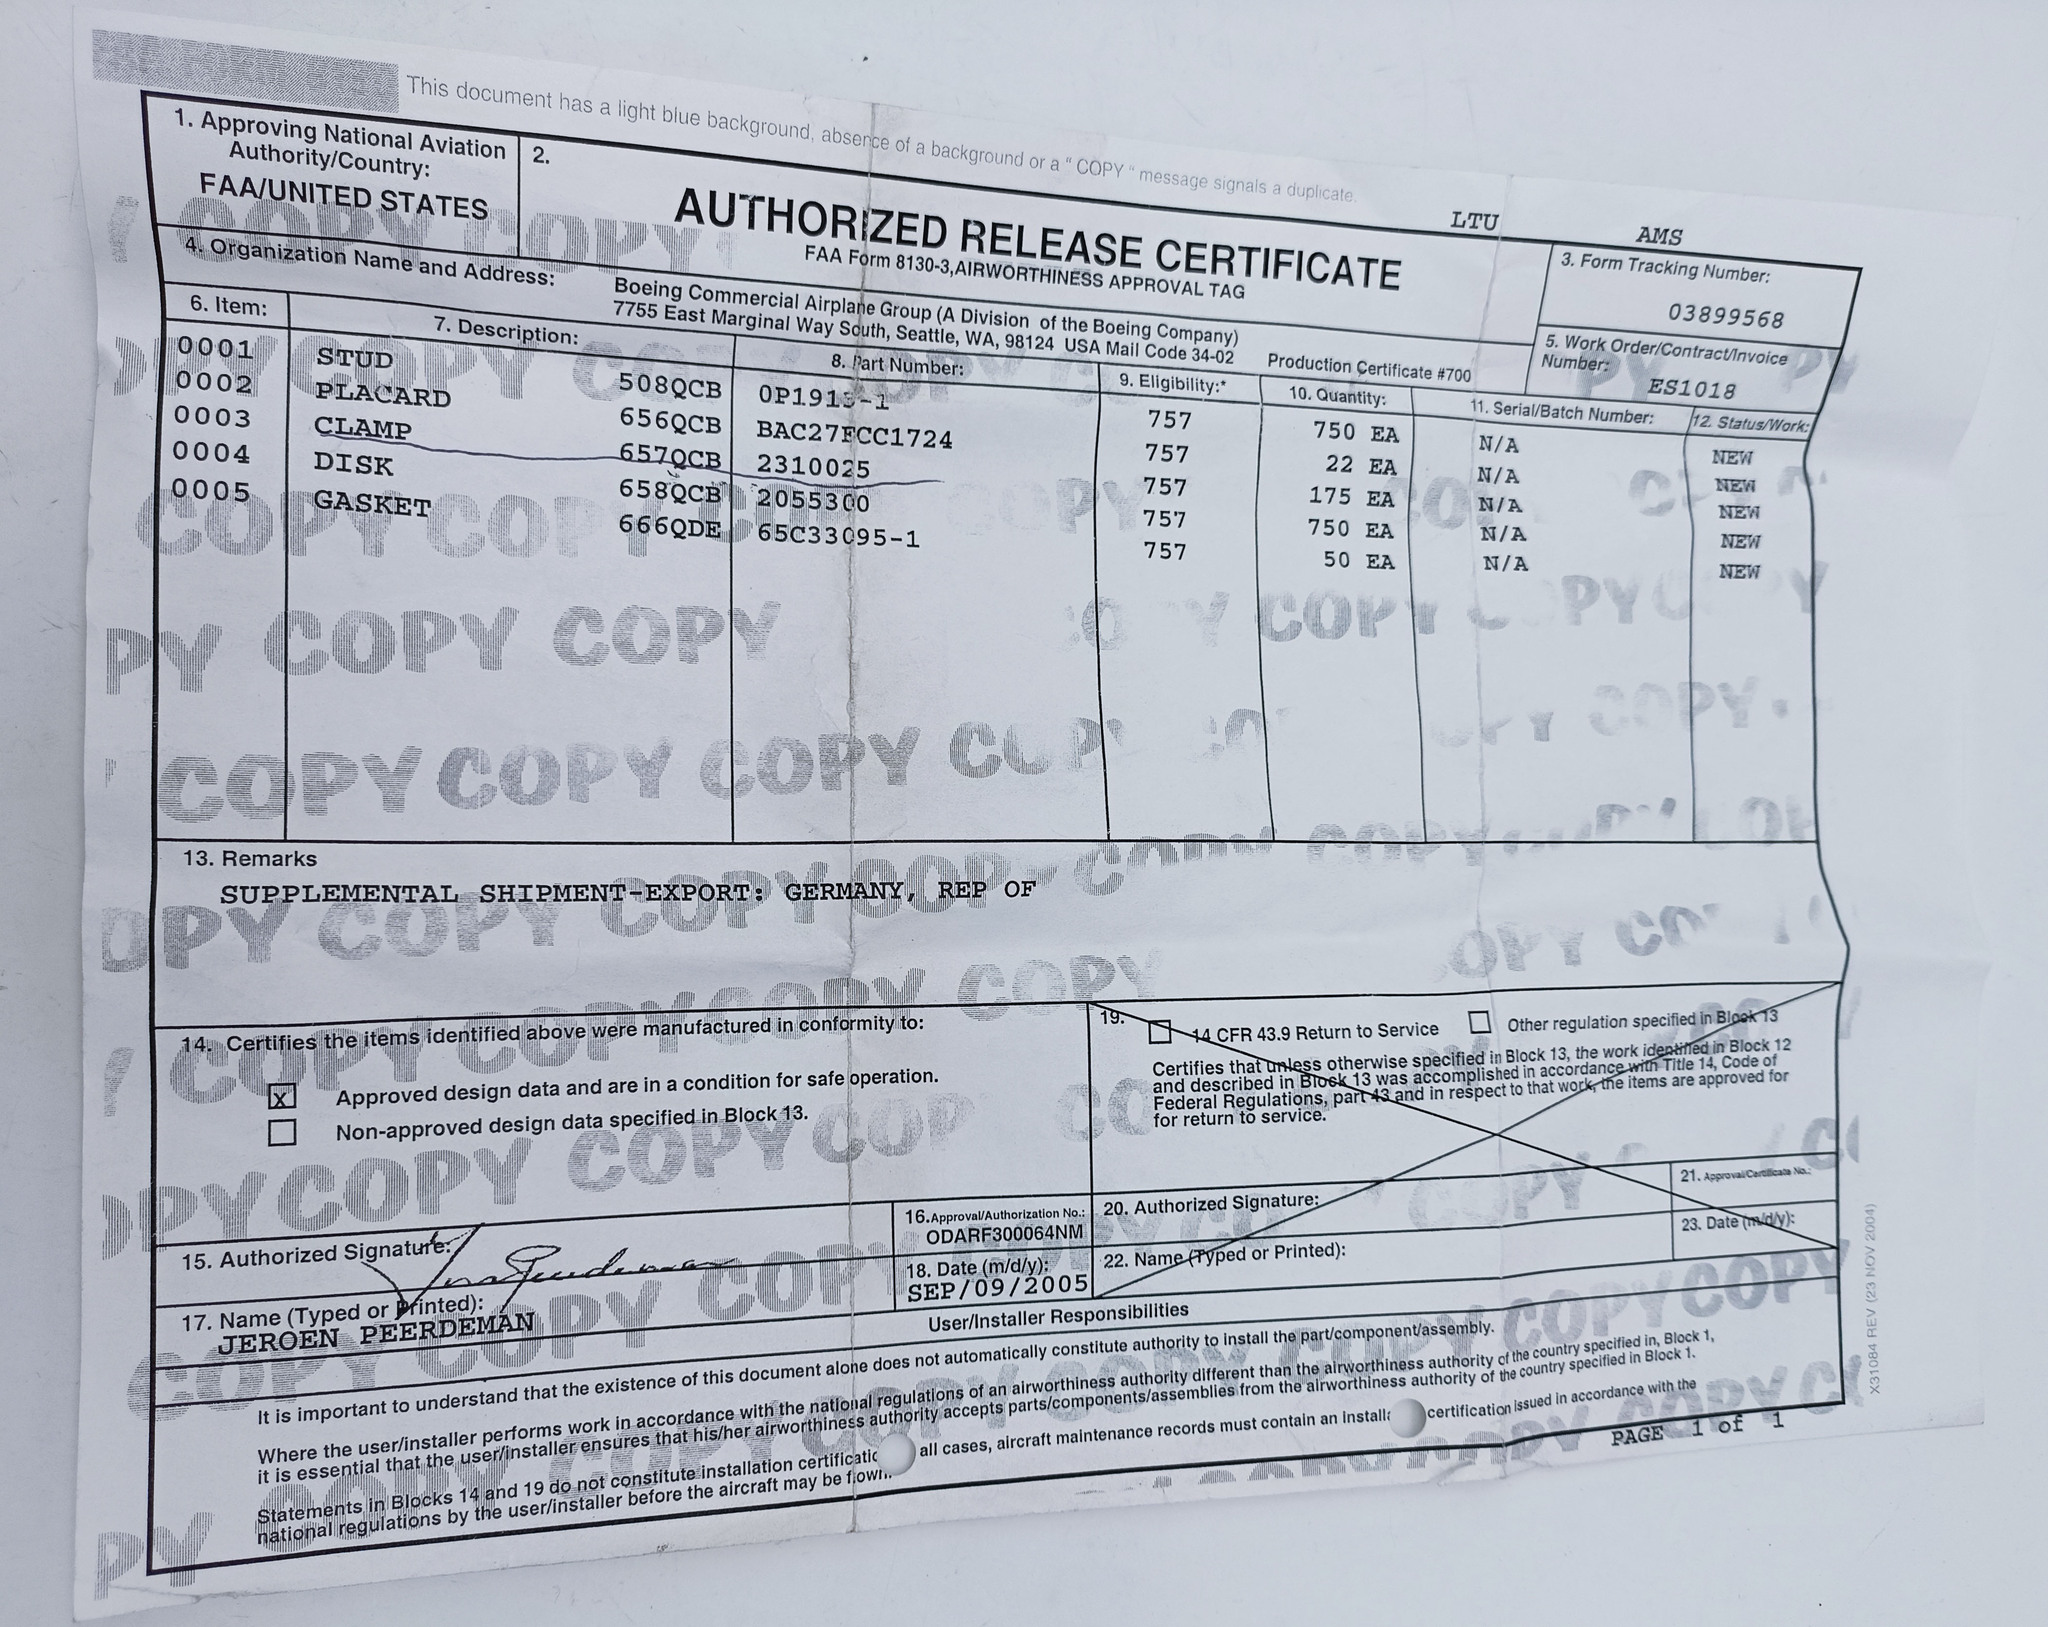 This document has a light blue background, absence of a background or a " COPY " message signals a duplicate.
LTU AMS
1. Approving National Aviation Authority/Country:
FAA/UNITED STATES
2.
AUTHORIZED RELEASE CERTIFICATE
FAA Form 8130-3,AIRWORTHINESS APPROVAL TAG
3. Form Tracking Number:
03899568
4. Organization Name and Address:
Boeing Commercial Airplane Group (A Division of the Boeing Company)
7755 East Marginal Way South, Seattle, WA, 98124 USA Mail Code 34-02
Production Certificate #700
5. Work Order/Contract/Invoice
Number:
ES1018
6. Item: 7. Description: 8. Part Number: 9. Eligibility:* 10. Quantity: 11. Serial/Batch Number: 12. Status/Work:
0001 STUD 508QCB 0P1913-1 757 750 EA N/A NEW
0002 PLACARD 656QCB BAC27FCC1724 757 22 EA N/A NEW
0003 CLAMP 657QCB 2310025 757 175 EA N/A NEW
0004 DISK 658QCB 2055300 757 750 EA N/A NEW
0005 GASKET 666QDE 65C33095-1 757 50 EA N/A NEW
COPY COPY COPY
13. Remarks
SUPPLEMENTAL SHIPMENT-EXPORT: GERMANY, REP OF
14. Certifies the items identified above were manufactured in conformity to:
x Approved design data and are in a condition for safe operation.
Non-approved design data specified in Block 13.
19.
14 CFR 43.9 Return to Service Other regulation specified in Block 13
Certifies that unless otherwise specified in Block 13, the work identified in Block 12
and described in Block 13 was accomplished in accordance with Title 14, Code of
Federal Regulations, part 43 and in respect to that work, the items are approved for
for return to service.
15. Authorized Signature:
16.Approval/Authorization No.:
ODARF300064NM
20. Authorized Signature:
21. Approval/Certificate No.:
17. Name (Typed or Printed):
JEROEN PEERDEMAN
18. Date (m/d/y):
SEP/09/2005
22. Name (Typed or Printed):
23. Date (m/d/y):
User/Installer Responsibilities
It is important to understand that the existence of this document alone does not automatically constitute authority to install the part/component/assembly.
Where the user/installer performs work in accordance with the national regulations of an airworthiness authority different than the airworthiness authority of the country specified in, Block 1,
it is essential that the user/installer ensures that his/her airworthiness authority accepts parts/components/assemblies from the airworthiness authority of the country specified in Block 1.
Statements in Blocks 14 and 19 do not constitute installation all cases, aircraft maintenance records must contain an certification issued in accordance with the
national regulations by the user/installer before the aircraft may be flown.
PAGE 1 of 1
X31084 REV (23 NOV 2004)